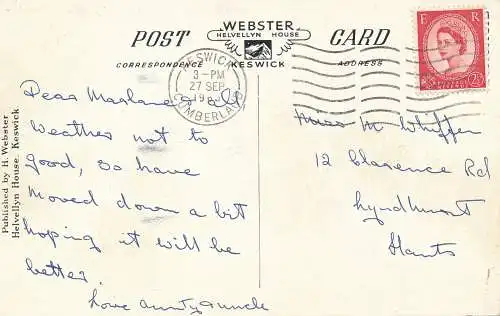 POST WEBSTER CARD
HELVELLYN HOUSE
CORRESPONDENCE KESWICK ADDRESS
KESWICK
3-PM
27 SEP
CUMBERLAND
E R
2½
Published by H. Webster
Helvellyn House, Keswick
Dear all
Weather not to
good, so have
moved down a bit
hoping it will be
better.
Love Aunty & Uncle
Miss M Whiffen
12 Clarence Rd
Lyndhurst
Hants